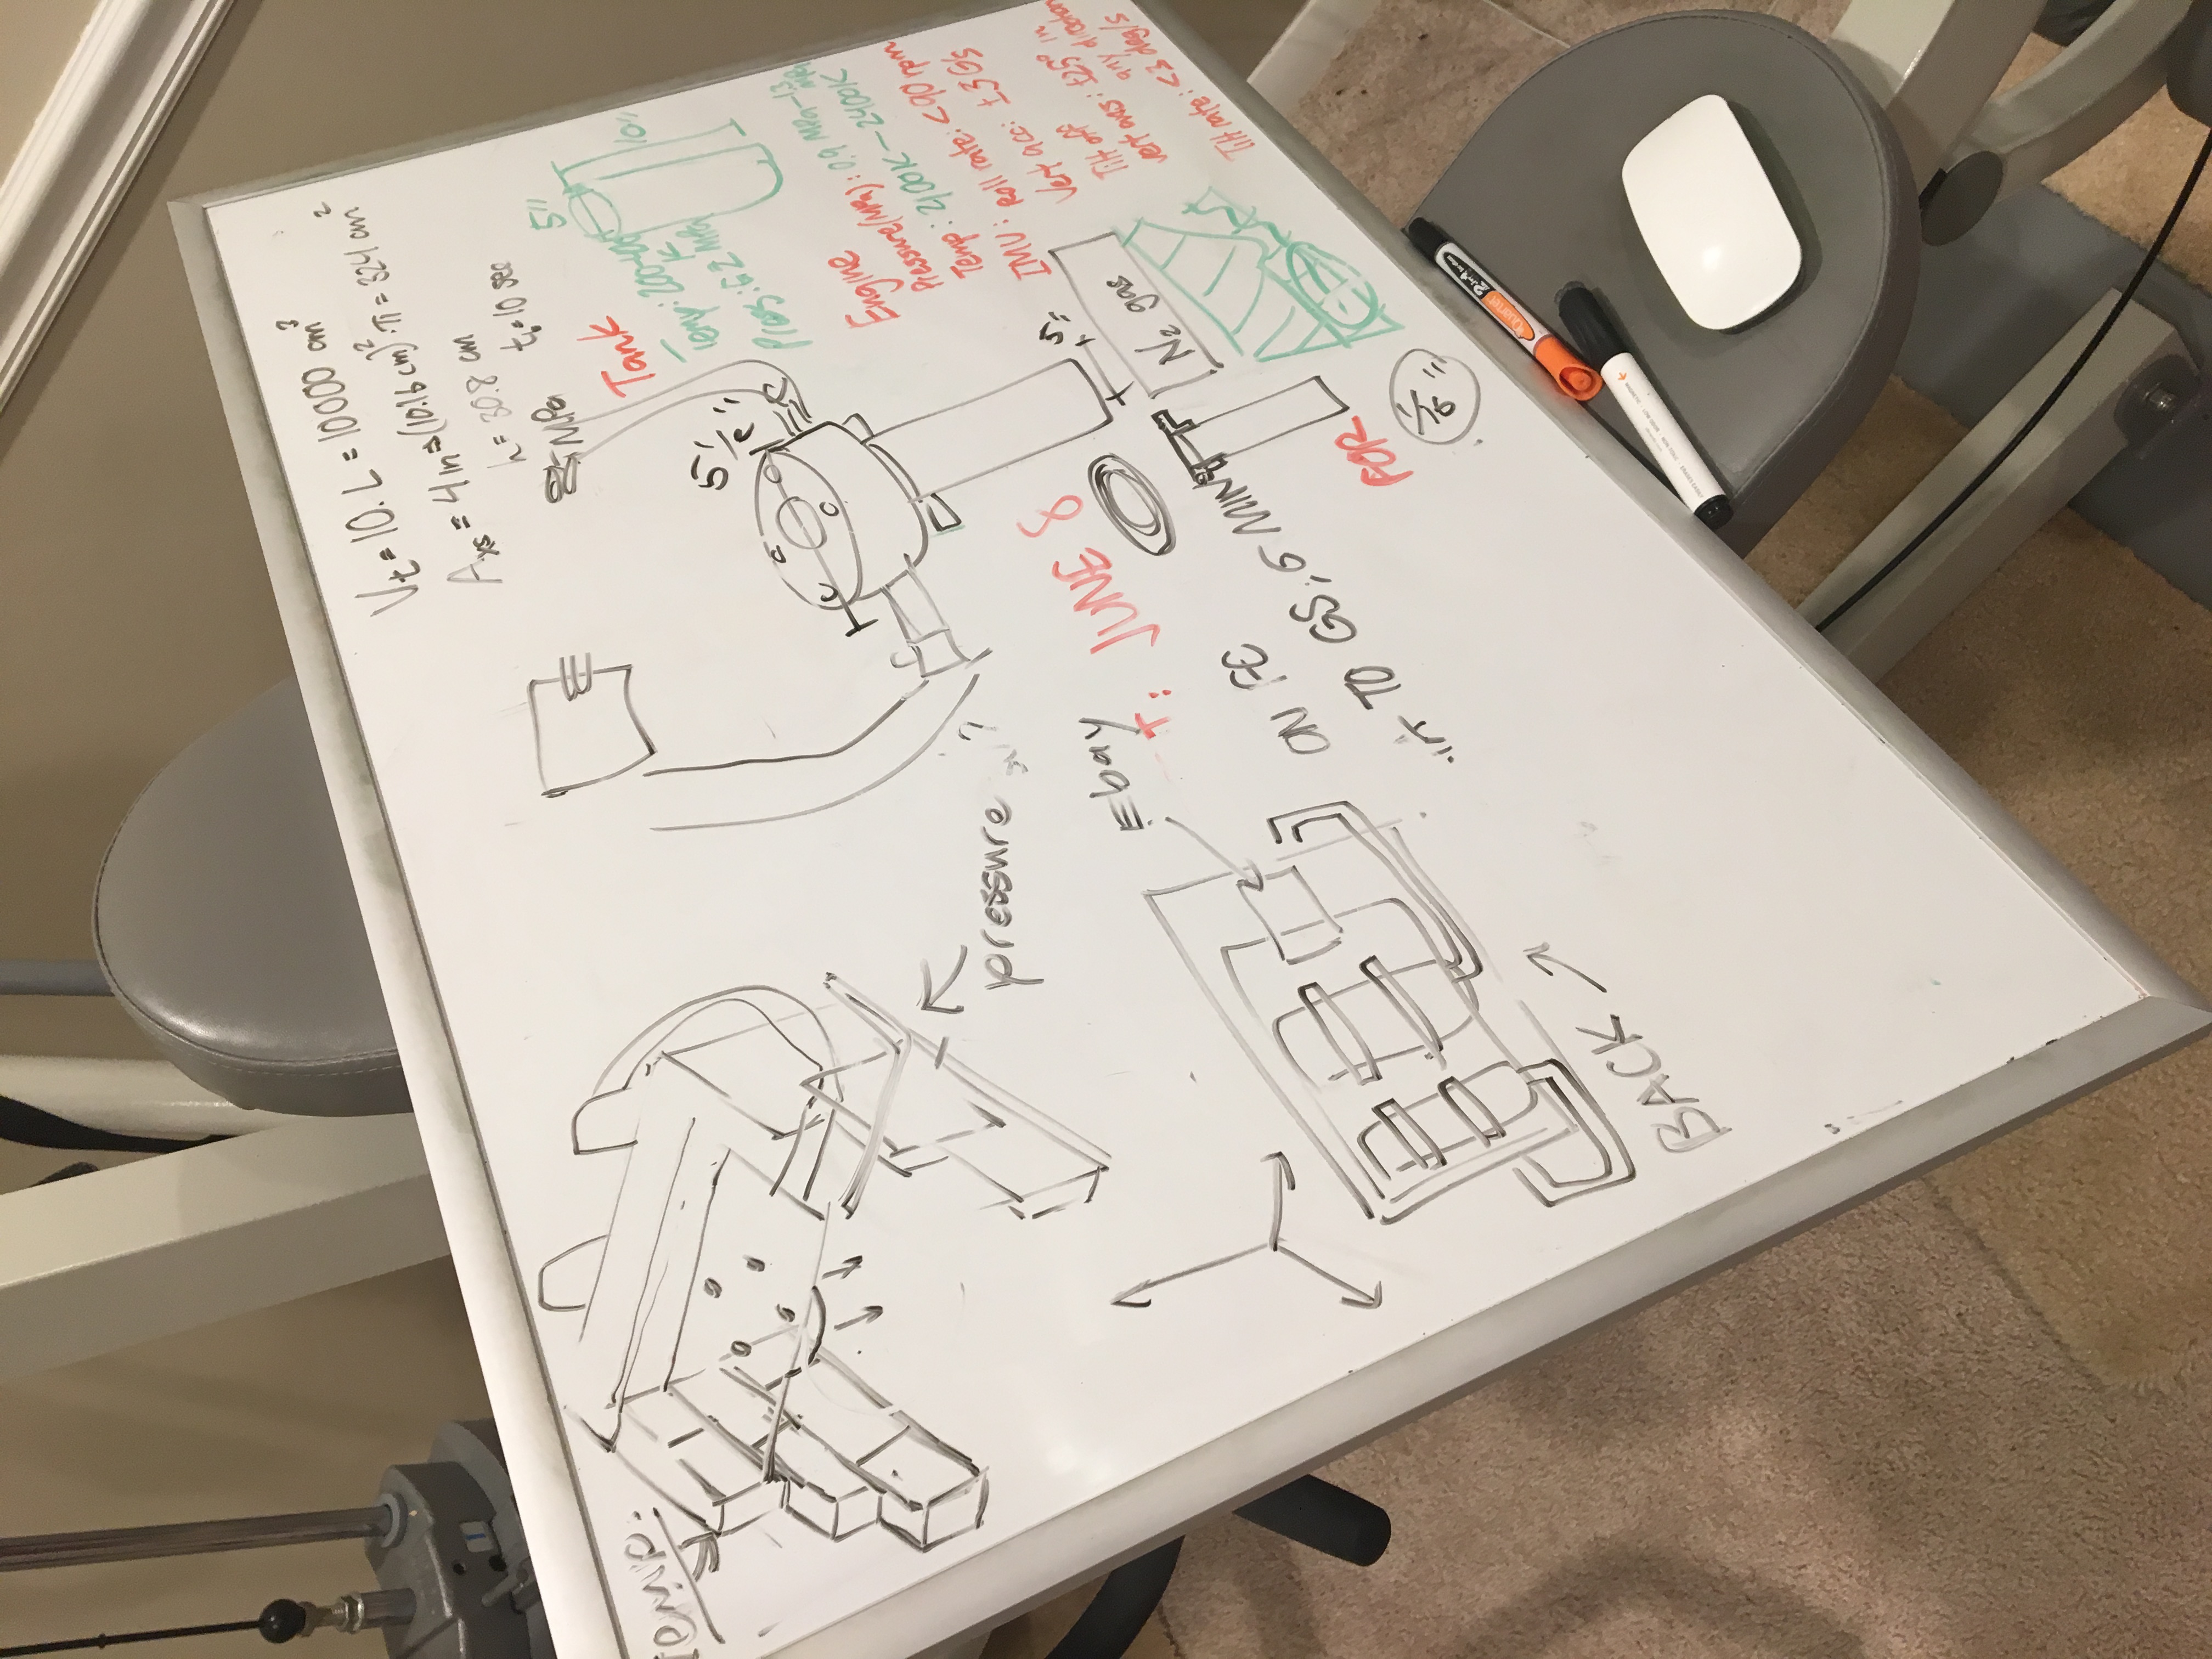 V_t = 10. L = 10000 cm³
A_xs = 4 in ⇒ (10.16 cm)² · π = 324 cm²
h = 30.8 cm
t_b = 10 sec
MPa
Temp.
5"
Tank
10"
Temp: 200-400
K
Press: MPa
5"
Engine
Pressure (MPa): 0.9 MPa - 1.3 MPa
Temp: 2100K - 2400K
IMU: Roll rate: < 90 rpm
Vert acc: ±3 G's
Tilt off
vert axis: ±25° in
any direction
Tilt rate: < 3 deg/s
pressure
Ebay
T: JUNE 8
N₂ gas
ON FC
TO GS; 5 MIN
FOR
1/16"
BACK
Quartet